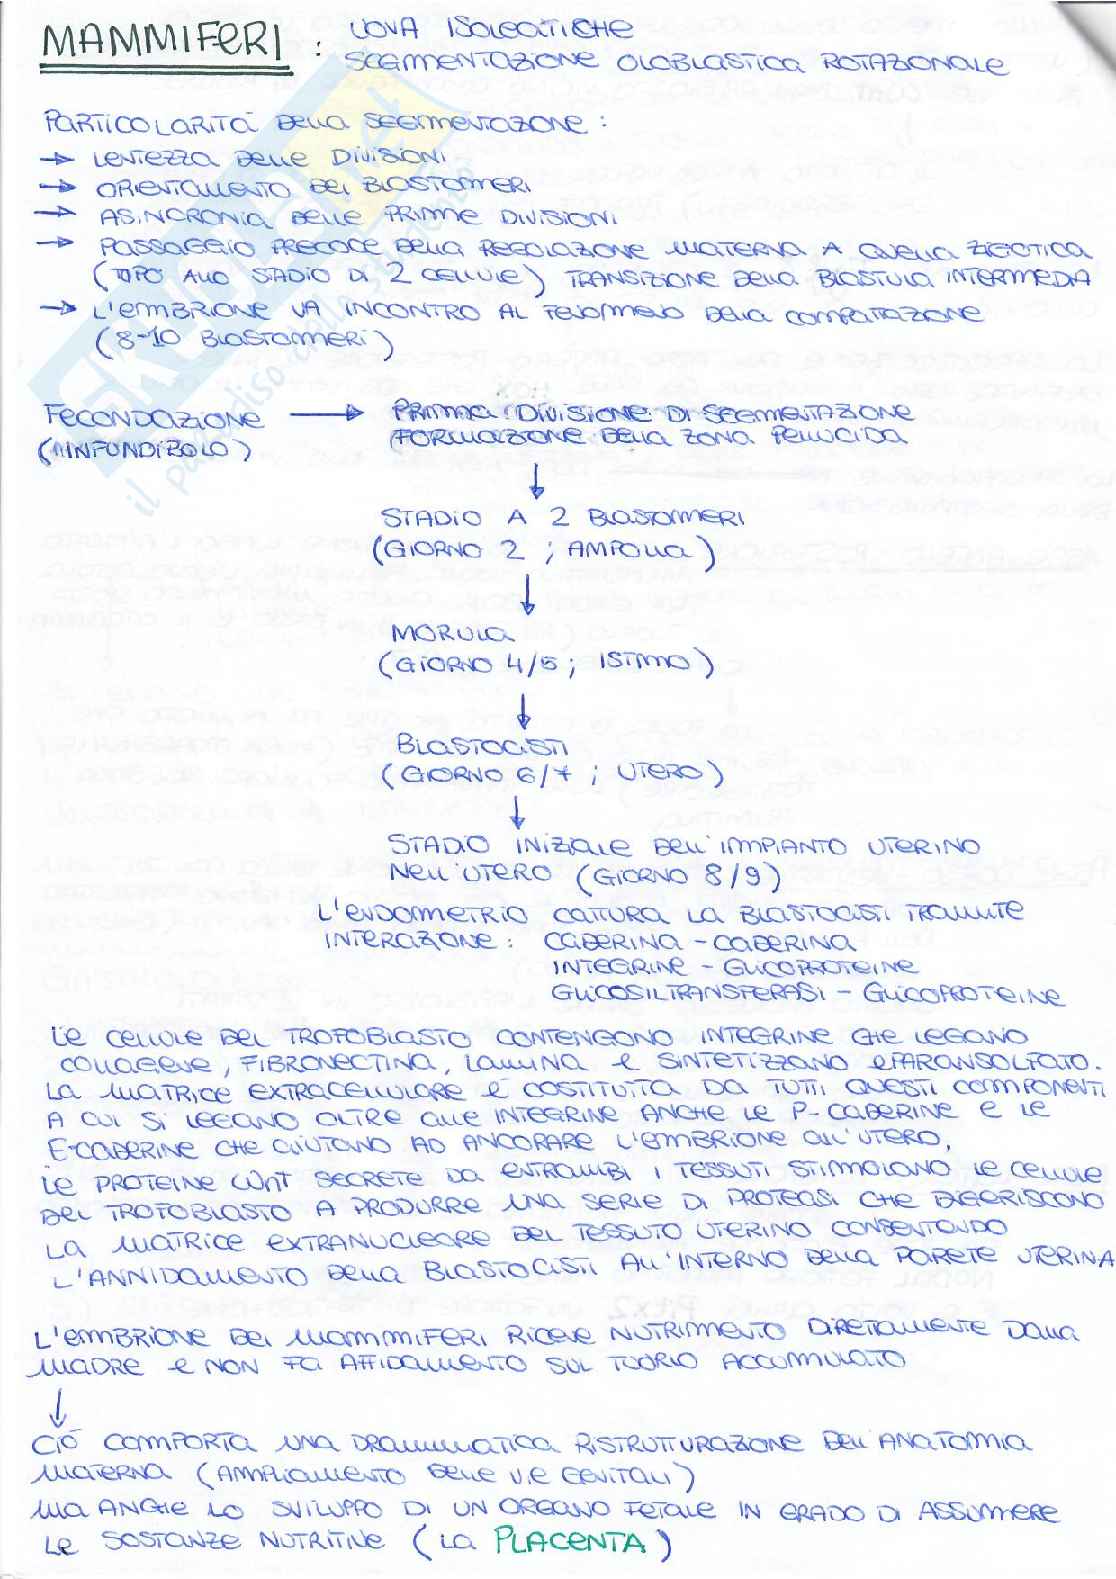 MAMMIFERI : UOVA ISOLECITICHE
SEGMENTAZIONE OLOBLASTICA ROTAZIONALE
PARTICOLARITÀ DELLA SEGMENTAZIONE :
→ LENTEZZA DELLE DIVISIONI
→ ORIENTAMENTO DEI BLASTOMERI
→ ASINCRONIA DELLE PRIME DIVISIONI
→ PASSAGGIO PRECOCE DELLA REGOLAZIONE MATERNA A QUELLA ZIGOTICA
(TOPO ALLO STADIO DI 2 CELLULE) TRANSIZIONE DELLA BLASTULA INTERMEDIA
→ L'EMBRIONE VA INCONTRO AL FENOMENO DELLA COMPATTAZIONE
(8-10 BLASTOMERI)
FECONDAZIONE → PRIMA DIVISIONE DI SEGMENTAZIONE
(INFUNDIBOLO) (FORMAZIONE DELLA ZONA PELLUCIDA
↓
STADIO A 2 BLASTOMERI
(GIORNO 2 ; AMPOLLA)
↓
MORULA
(GIORNO 4/5 ; ISTMO)
↓
BLASTOCISTI
(GIORNO 6/7 ; UTERO)
↓
STADIO INIZIALE DELL'IMPIANTO UTERINO
NELL'UTERO (GIORNO 8/9)
L'ENDOMETRIO CATTURA LA BLASTOCISTI TRAMITE
INTERAZIONE : CADERINA - CADERINA
INTEGRINE - GLICOPROTEINE
GLICOSILTRANSFERASI - GLICOPROTEINE
LE CELLULE DEL TROFOBLASTO CONTENGONO INTEGRINE CHE LEGANO
COLLAGENE, FIBRONECTINA, LAMINA E SINTETIZZANO EPARANSOLFATO.
LA MATRICE EXTRACELLULARE È COSTITUITA DA TUTTI QUESTI COMPONENTI
A CUI SI LEGANO OLTRE ALLE INTEGRINE ANCHE LE P-CADERINE E LE
E-CADERINE CHE AIUTANO AD ANCORARE L'EMBRIONE ALL'UTERO,
LE PROTEINE WNT SECRETE DA ENTRAMBI I TESSUTI STIMOLANO LE CELLULE
DEL TROFOBLASTO A PRODURRE UNA SERIE DI PROTEASI CHE DIGERISCONO
LA MATRICE EXTRANUCLEARE DEL TESSUTO UTERINO CONSENTENDO
L'ANNIDAMENTO DELLA BLASTOCISTI ALL'INTERNO DELLA PARETE UTERINA
L'EMBRIONE DEI MAMMIFERI RICEVE NUTRIMENTO DIRETTAMENTE DALLA
MADRE E NON FA AFFIDAMENTO SUL TUORLO ACCUMULATO
↓
CIÒ COMPORTA UNA DRAMMATICA RISTRUTTURAZIONE DELL'ANATOMIA
MATERNA (AMPLIAMENTO DELLE VIE GENITALI)
MA ANCHE LO SVILUPPO DI UN ORGANO FETALE IN GRADO DI ASSUMERE
LE SOSTANZE NUTRITIVE (LA PLACENTA)